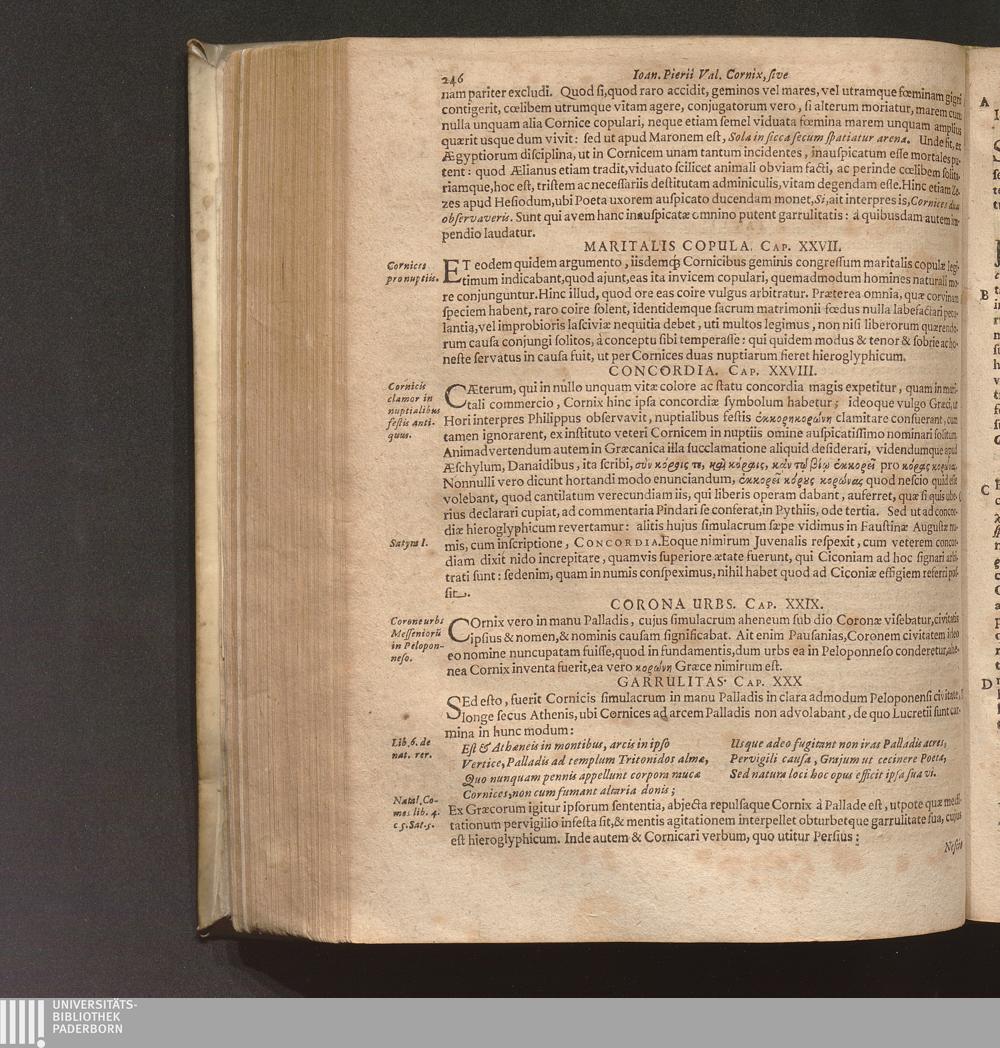 246
Ioan. Pierii Val. Cornix, sive
nam pariter excludi. Quod si, quod raro accidit, geminos vel mares, vel utramque fœminam gigni
contigerit, cœlibem utrumque vitam agere, conjugatorum vero, si alterum moriatur, marem cum
nulla unquam alia Cornice copulari, neque etiam semel viduata fœmina marem unquam amplius
quærit usque dum vivit: sed ut apud Maronem est, Sola in sicca secum spatiatur arena. Unde fit, ex
Ægyptiorum disciplina, ut in Cornicem unam tantum incidentes, inauspicatum esse mortales pu-
tent: quod Ælianus etiam tradit, viduato scilicet animali obviam facti, ac perinde cœlibem solita-
riamque, hoc est, tristem ac necessariis destitutam adminiculis, vitam degendam esse. Hinc etiam Ze-
zes apud Hesiodum, ubi Poeta uxorem auspicato ducendam monet, Si, ait interpres is, Cornices duas
observaveris. Sunt qui avem hanc inauspicatæ omnino putent garrulitatis: à quibusdam autem im-
pendio laudatur.
MARITALIS COPULA. CAP. XXVII.
Cornices
pro nuptiis.
ET eodem quidem argumento, iisdemq; Cornicibus geminis congressum maritalis copulæ legi-
timum indicabant, quod ajunt, eas ita invicem copulari, quemadmodum homines naturali mo-
re conjunguntur. Hinc illud, quod ore eas coire vulgus arbitratur. Præterea omnia, quæ corvinam
speciem habent, raro coire solent, identidemque sacrum matrimonii fœdus nulla labefactari petu-
lantia, vel improbioris lasciviæ nequitia debet, uti multos legimus, non nisi liberorum quærendo-
rum causa conjungi solitos, à conceptu sibi temperasse: qui quidem modus & tenor & sobrie ac ho-
neste servatus in causa fuit, ut per Cornices duas nuptiarum fieret hieroglyphicum.
CONCORDIA. CAP. XXVIII.
Cornicis
clamor in
nuptialibus
festis anti-
quus.
CÆterum, qui in nullo unquam vitæ colore ac statu concordia magis expetitur, quam in mari-
tali commercio, Cornix hinc ipsa concordiæ symbolum habetur; ideoque vulgo Græci, ut
Hori interpres Philippus observavit, nuptialibus festis ἐκκορηκορώνη clamitare consuerant, cum
tamen ignorarent, ex instituto veteri Cornicem in nuptiis omine auspicatissimo nominari solitum
Animadvertendum autem in Græcanica illa succlamatione aliquid desiderari, videndumque apud
Æschylum, Danaidibus, ita scribi, σὺν κόροις τε, καὶ κόραις, κἀν τῷ βίῳ ἐκκορεῖ pro κόρας κορώνας.
Nonnulli vero dicunt hortandi modo enunciandum, ἐκκορεῖ κόρυς κορώνας quod nescio quid esse
volebant, quod cantilatum verecundiam iis, qui liberis operam dabant, auferret, quæ si quis ube-
rius declarari cupiat, ad commentaria Pindari se conferat, in Pythiis, ode tertia. Sed ut ad concor-
diæ hieroglyphicum revertamur: alitis hujus simulacrum sæpe vidimus in Faustinæ Augustæ nu-
Satyra I.
mis, cum inscriptione, CONCORDIA. Eoque nimirum Juvenalis respexit, cum veterem concor-
diam dixit nido increpitare, quamvis superiore ætate fuerunt, qui Ciconiam ad hoc signari arbi-
trati sunt: sed enim, quam in numis conspeximus, nihil habet quod ad Ciconiæ effigiem referri pos-
sit.
CORONA URBS. CAP. XXIX.
Corone urbs
Messeniorū
in Pelopon-
neso.
COrnix vero in manu Palladis, cujus simulacrum aheneum sub dio Coronæ visebatur, civitatis
ipsius & nomen, & nominis causam significabat. Ait enim Pausanias, Coronem civitatem ideo
eo nomine nuncupatam fuisse, quod in fundamentis, dum urbs ea in Peloponneso conderetur, ahe-
nea Cornix inventa fuerit, ea vero κορώνη Græce nimirum est.
GARRULITAS. CAP. XXX
SEd esto, fuerit Cornicis simulacrum in manu Palladis in clara admodum Peloponensi civitate,
longe secus Athenis, ubi Cornices ad arcem Palladis non advolabant, de quo Lucretii sunt car-
mina in hunc modum:
Lib. 6. de
nat. rer.
Est & Athæneis in montibus, arcis in ipso
Vertice, Palladis ad templum Tritonidos almæ,
Quo nunquam pennis appellunt corpora raucæ
Cornices, non cum fumant altaria donis;
Usque adeo fugitant non iras Palladis acres,
Pervigili causa, Grajum ut cecinere Poeta,
Sed natura loci hoc opus efficit ipsa sua vi.
Natal. Co-
mes lib. 4.
c 5. Sat. 5.
Ex Græcorum igitur ipsorum sententia, abjecta repulsaque Cornix à Pallade est, utpote quæ medi-
tationum pervigilio infesta sit, & mentis agitationem interpellet obturbetque garrulitate sua, cujus
est hieroglyphicum. Inde autem & Cornicari verbum, quo utitur Persius:
Nescio
A
B
C
D
UNIVERSITÄTS-
BIBLIOTHEK
PADERBORN